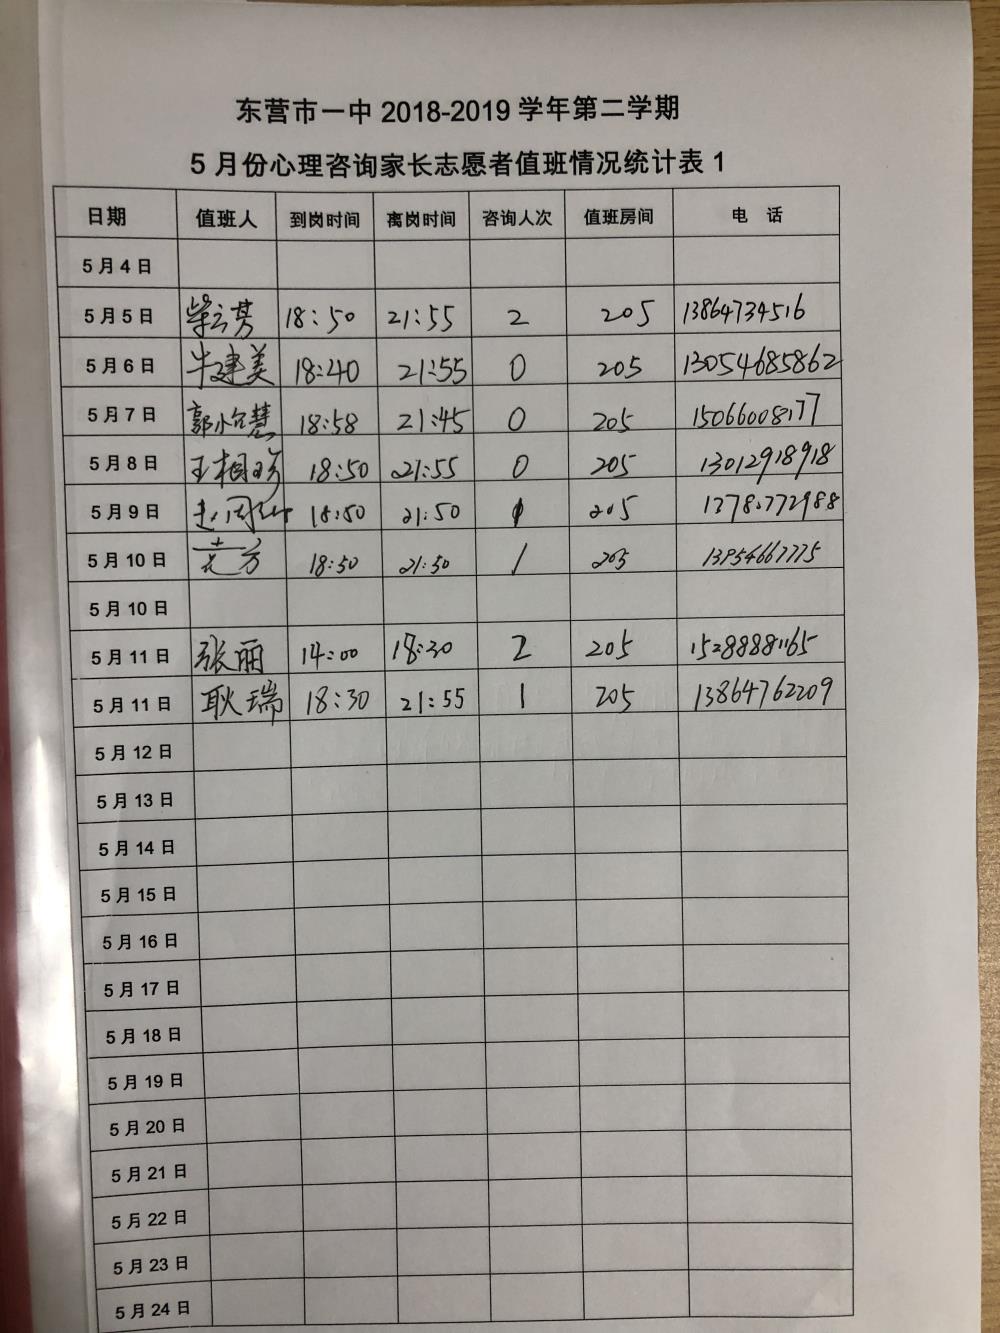 东营市一中 2018-2019 学年第二学期
5 月份心理咨询家长志愿者值班情况统计表 1
日期 值班人 到岗时间 离岗时间 咨询人次 值班房间 电 话
5 月 4 日
5 月 5 日 18:50 21:55 2 205 13864734516
5 月 6 日 牛建美 18:40 21:55 0 205 13054685862
5 月 7 日 18:58 21:45 0 205 15066008177
5 月 8 日 18:50 21:55 0 205 13012918918
5 月 9 日 18:50 21:50 1 205
5 月 10 日 18:50 21:50 1 205
5 月 10 日
5 月 11 日 张丽 14:00 18:30 2 205 15288881165
5 月 11 日 耿瑞 18:30 21:55 1 205 13864762209
5 月 12 日
5 月 13 日
5 月 14 日
5 月 15 日
5 月 16 日
5 月 17 日
5 月 18 日
5 月 19 日
5 月 20 日
5 月 21 日
5 月 22 日
5 月 23 日
5 月 24 日